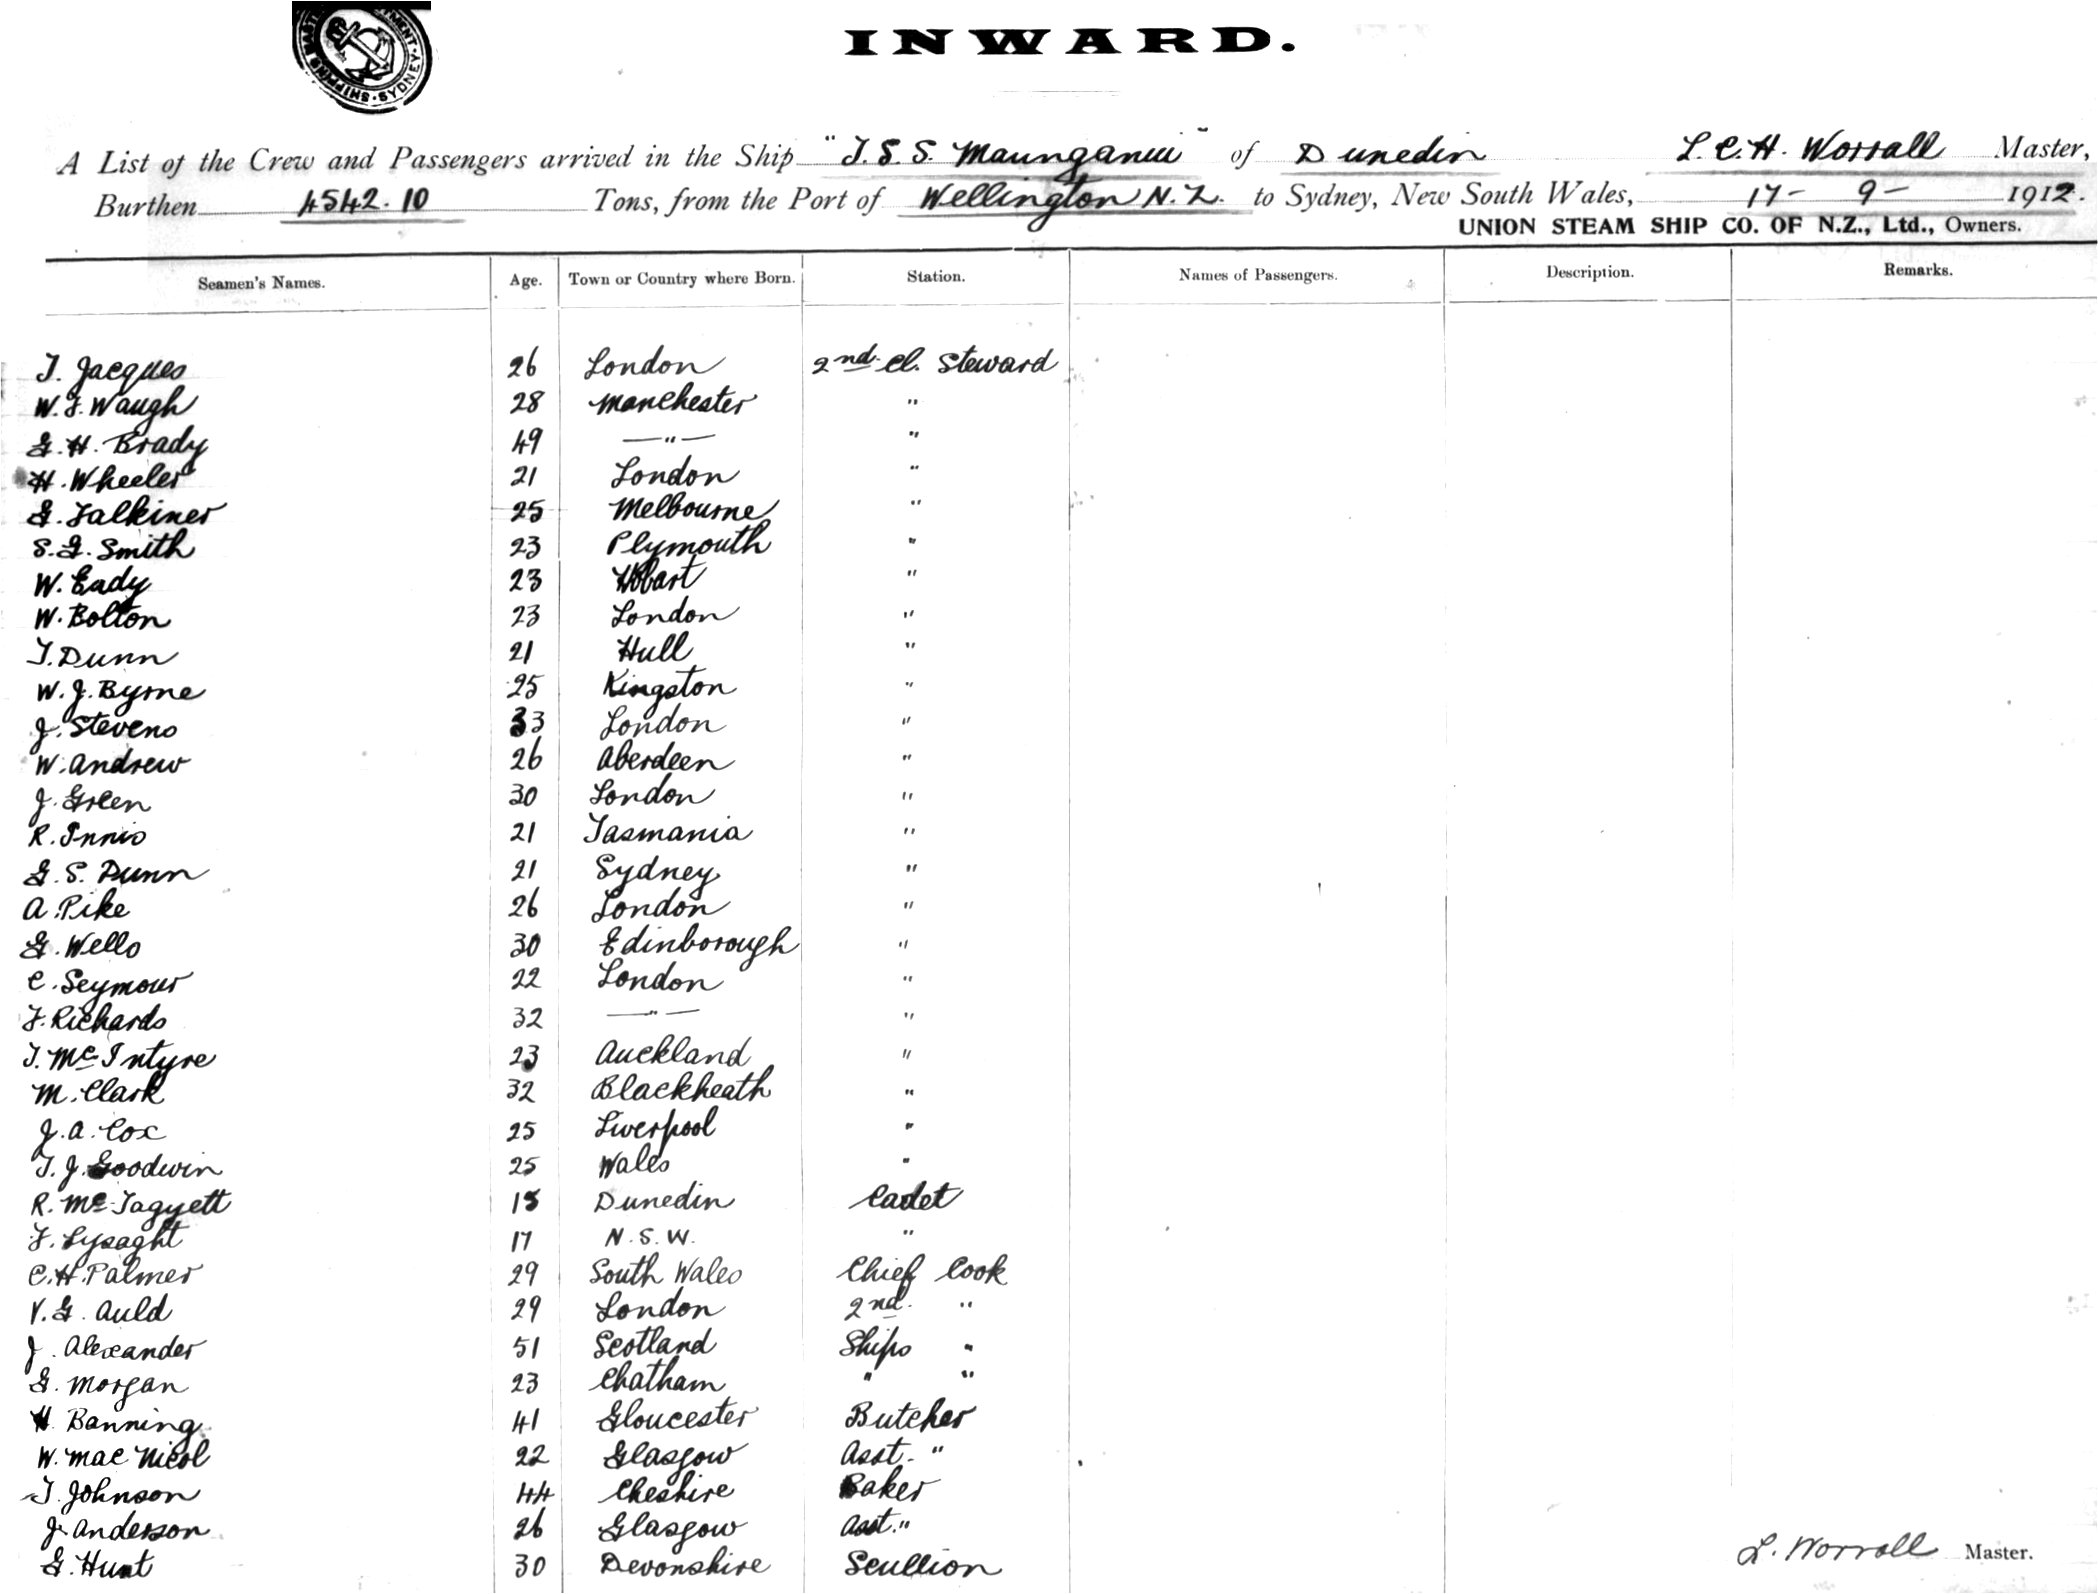 SHIPPING MASTER'S DEPARTMENT · SYDNEY
INWARD.
A List of the Crew and Passengers arrived in the Ship "T.S.S. Maunganui" of Dunedin L.C.H. Worrall Master,
Burthen 4542.10 Tons, from the Port of Wellington N.Z. to Sydney, New South Wales, 17 - 9 - 1912.
UNION STEAM SHIP CO. OF N.Z., Ltd., Owners.
Seamen's Names. Age. Town or Country where Born. Station. Names of Passengers. Description. Remarks.
T. Jacques 26 London 2nd Cl. Steward
W. F. Waugh 28 Manchester "
G. H. Brady 49 —"— "
H. Wheeler 21 London "
G. Falkiner 25 Melbourne "
S. G. Smith 23 Plymouth "
W. Eady 23 Hobart "
W. Bolton 23 London "
T. Dunn 21 Hull "
W. J. Byrne 25 Kingston "
J. Stevens 33 London "
W. Andrew 26 Aberdeen "
J. Green 30 London "
R. Innis 21 Tasmania "
G. S. Dunn 21 Sydney "
A. Pike 26 London "
G. Wells 30 Edinborough "
C. Seymour 22 London "
F. Richards 32 —"— "
T. McIntyre 23 Auckland "
M. Clark 32 Blackheath "
J. A. Cox 25 Liverpool "
T. J. Goodwin 25 Wales "
R. McTagyett Dunedin Cadet
F. Lysaght 17 N.S.W. "
C. H. Palmer 29 South Wales Chief Cook
V. G. Auld 29 London 2nd. "
J. Alexander 51 Scotland Ships "
G. Morgan 23 Chatham " "
H. Banning 41 Gloucester Butcher
W. Mac Nicol 22 Glasgow Asst. "
T. Johnson 44 Cheshire Baker
J. Anderson 26 Glasgow Asst. "
G. Hunt 30 Devonshire Scullion
L. Worrall Master.